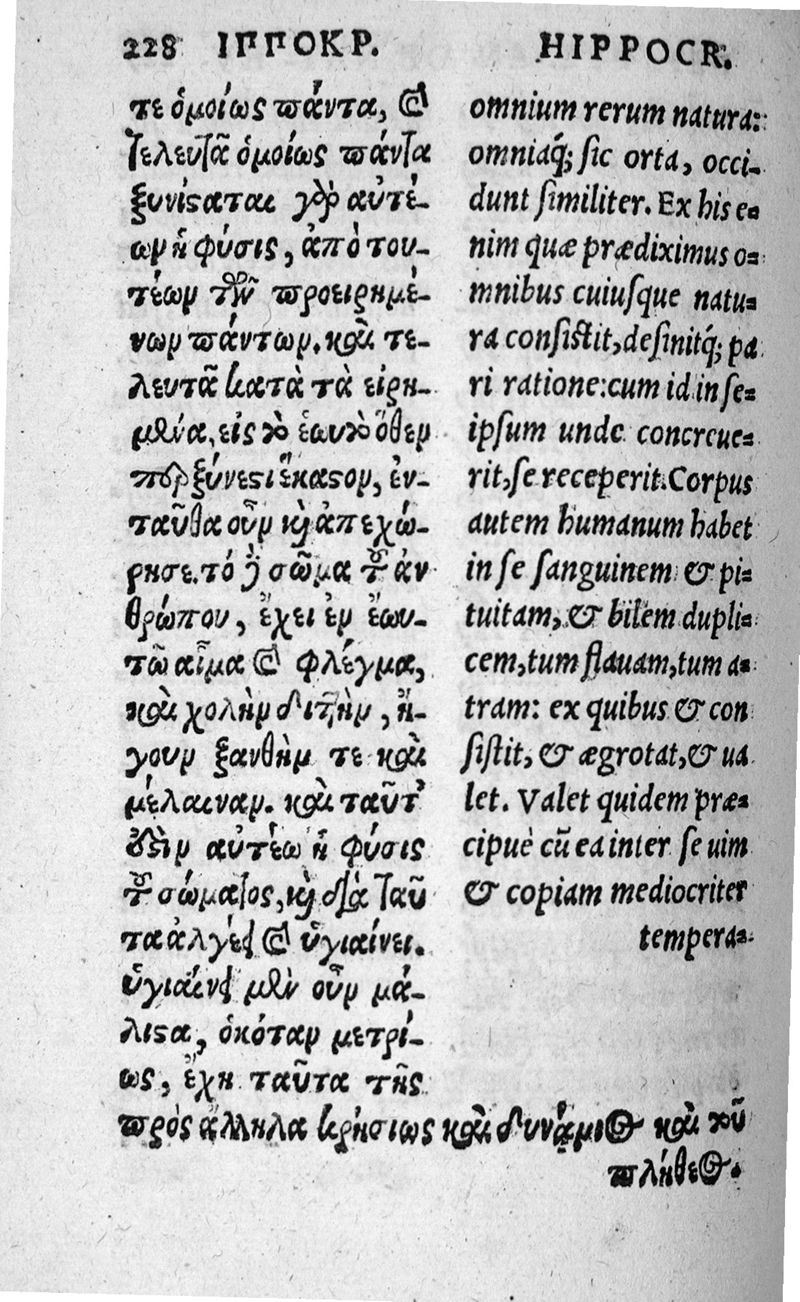 228 ΙΠΠΟΚΡ.
τε ὁμοίως πάντα, καὶ
τελευτᾶ ὁμοίως πάντα
ξυνίσαται γὰρ αὐτέ-
ων ἡ φύσις, ἀπὸ του-
τέων τῶν προειρημέ-
νων πάντων. καὶ τε-
λευτᾶ κατὰ τὰ εἰρη-
μένα, εἰς τὸ ἑωυτὸ ὅθεν
περ ξύνεστι ἕκαστον, ἐν-
ταῦθα οὖν καὶ ἀπεχώ-
ρησε. τό δὲ σῶμα τοῦ ἀν
θρώπου, ἔχει ἐν ἑωυ-
τῶ αἷμα καὶ φλέγμα,
καὶ χολὴν διττὴν, ἤ-
γουν ξανθὴν τε καὶ
μέλαιναν. καὶ ταῦτ'
ἐστὶν αὐτέω ἡ φύσις
τοῦ σώματος, καὶ διὰ ταῦ
τα ἀλγέει καὶ ὑγιαίνει.
ὑγιαίνει μὲν οὖν μά-
λιστα, ὁκόταν μετρί-
ως, ἔχη ταῦτα τῆς
πρὸς ἄλληλα κρήσιως καὶ δυνάμιος καὶ τοῦ
πλήθεος.
HIPPOCR.
omnium rerum natura:
omniaq́; ſic orta, occi-
dunt ſimiliter. Ex his e-
nim quæ prædiximus o-
mnibus cuiuſque natu-
ra conſiſtit, deſinitq́; pa
ri ratione: cum id in ſe-
ipſum unde concreue-
rit, ſe receperit. Corpus
autem humanum habet
in ſe ſanguinem & pi-
tuitam, & bilem dupli-
cem, tum flauam, tum a-
tram: ex quibus & con
ſiſtit, & ægrotat, & ua
let. Valet quidem præ-
cipuè cũ ea inter ſe uim
& copiam mediocriter
tempera-